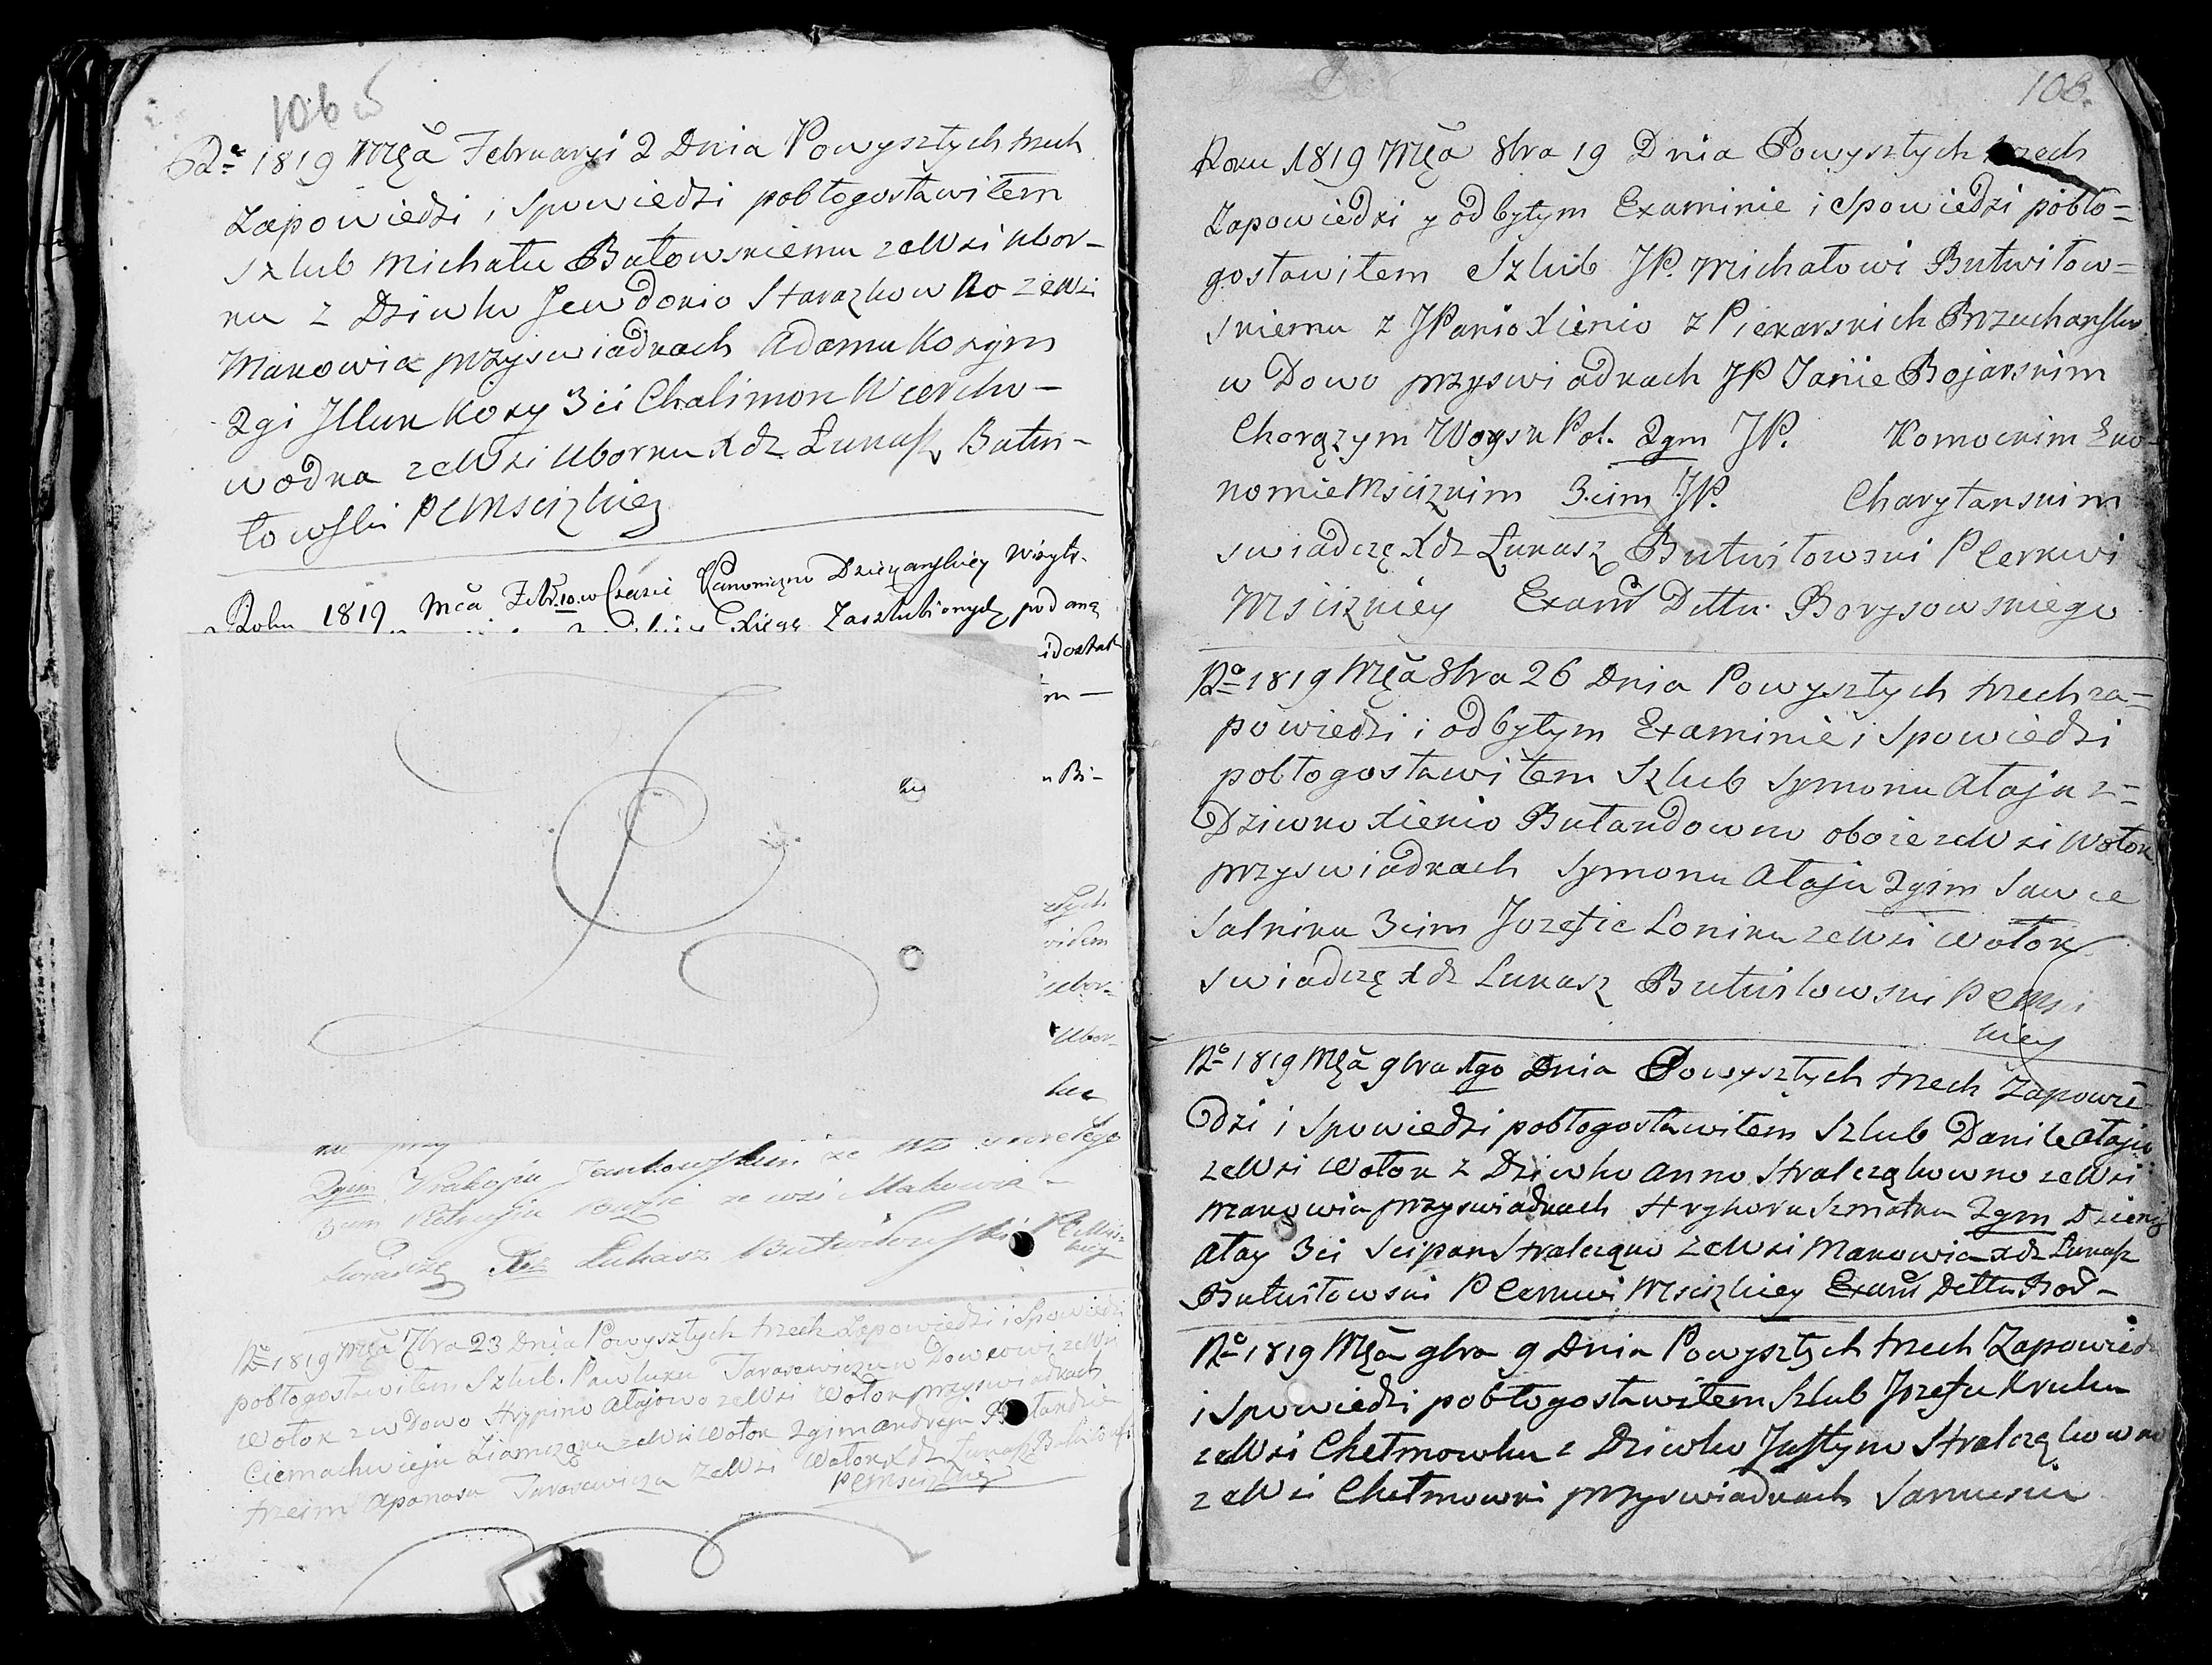 106 b
Ro 1819 Mca Februaryi 2 Dnia Powyszłych trzech
Zapowiedzi i Spowiedzi pobłogosławiłem
Szlub Michału Butowskiemu ze Wsi Ubor-
ku z Dziwko Jewdokio Starazkowno ze Wsi
Makowia przyswiadkach Adamu Kozym
2gi Illuk Kozy 3ci Chalimon Wiercho-
wodka ze Wsi Uborku Xdz Łukasz Butwi-
łowski PCMscizkiey
Roku 1819 Mca Febr. 10. w Czasie Kanoniczno Dziekanskiey Wizyty.
Zaszlubionych pod aną
idostat
m —
u Bi-
ku
widem
Ubor-
ku
na przy
2gim Prakopiu Jankowskim ze
3cim ze wsi Makowia -
Swiadczę Xdz Łukasz Butwiłowski P C Msciz
kiey
Ro 1819 Mca 7bra 23 Dnia Powyszłych trzech Zapowiedzi i Spowiedzi
pobłogosławiłem Szlub. Pawluku Tarasewiczu w Dowcowi ze Wsi
Wołok z w Dowo Hrypino Ałajowo ze Wsi Wołok przyswiadkach
Ciemachwieju ze Wsi Wołok 2gim Andreju Bułandzie
trzeim Aponasu Tarasewicza ze Wsi Wołok Xdz Łukasz Butwiłowski
PCMscizkiey
108.
Roku 1819 Mca 8bra 19 Dnia Powyszłych trzech
Zapowiedzi y odbytym Examinie i Spowiedzi pobło=
gosławiłem Szlub JP. Michałowi Butwiłow=
skiemu z JPanio Xienio z Piekarskich Brzuchansko
w Dowo przyswiadkach JP Janie Bojarskim
Chorązym Woysk Pol. 2gm JP. Komockim Eko-
nomie Mscizkim 3.cim JP. Charytanskim
swiadczę Xdz Łukasz Butwiłowski P Cerkwi
Mscizkiey Exam Dettu. Borysowskiego
Ro 1819 Mca 8bra 26 Dnia Powyszłych trzech za=
powiedzi i odbytym Examinie i Spowiedzi
pobłogosławiłem Szlub Symonu Ałaju z=
Dziwko Xienio Bułandowno oboie ze Wsi Wołok
przyswiadkach Symonu Ałaju 2gim Sawce
Salniku 3cim Jozefie Loniku ze Wsi Wołok
swiadczę Xdz Łukasz Butwiłowski P C Msci
kiey
Ro 1819 Mca 9bra 1go Dnia Powyszłych trzech Zapowie-
dzi i Spowiedzi pobłogosławiłem Szlub Danile Ałaju
ze Wsi Wołok z Dziwko Anno Stralcząkowno ze Wsi
Makowia przyswiadkach Hryhoru Szmatku 2gm Dzieniz
Ałay 3ci Scipan Stralcząko ze Wsi Makowia Xdz Łukasz
Butwiłowski P Cerkwi Mscizkiey Exam Dettu Bod-
Ro 1819 Mca 9bra 9 Dnia Powyszłych trzech Zapowiedzi
i Spowiedzi pobłogosławiłem Szlub Jozefu Kruku
ze Wsi Chełmowku z Dziwko Justyno Stralcząkowno
ze Wsi Chełmowki przyswiadkach Samusiu